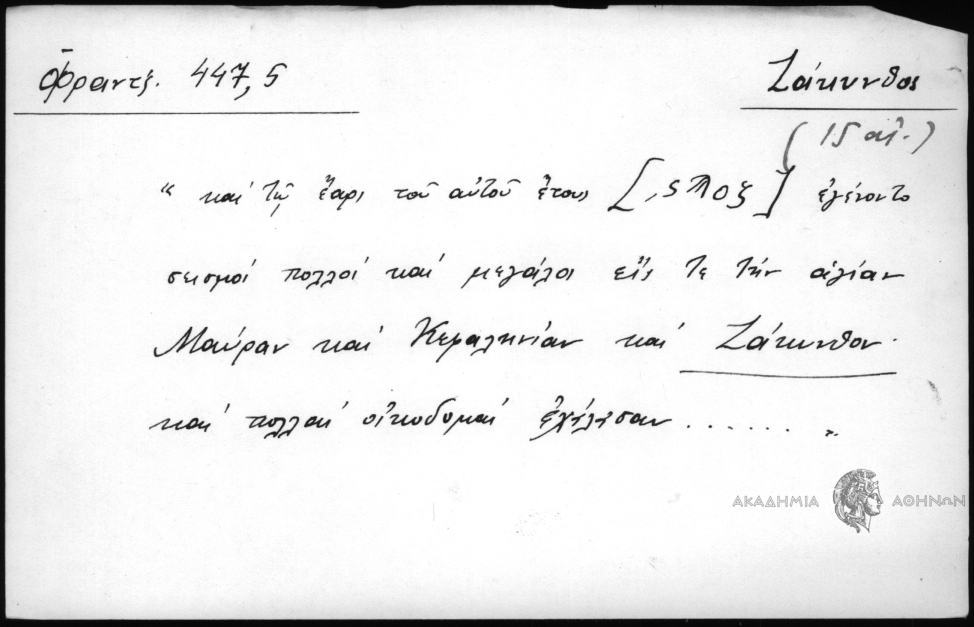 Φραντζ. 447,5
Ζάκυνθος
(15 αἰ.)
“ καὶ τῷ ἔαρι τοῦ αὐτοῦ ἔτους [͵ϛ Ϡοζ] ἐγένοντο
σεισμοί πολλοί καί μεγάλοι εἴς τε τήν ἁγίαν
Μαύραν καί Κεφαληνίαν καί Ζάκυνθον·
καί πολλαί οἰκοδομαί ......„
ΑΚΑΔΗΜΙΑ ΑΘΗΝΩΝ